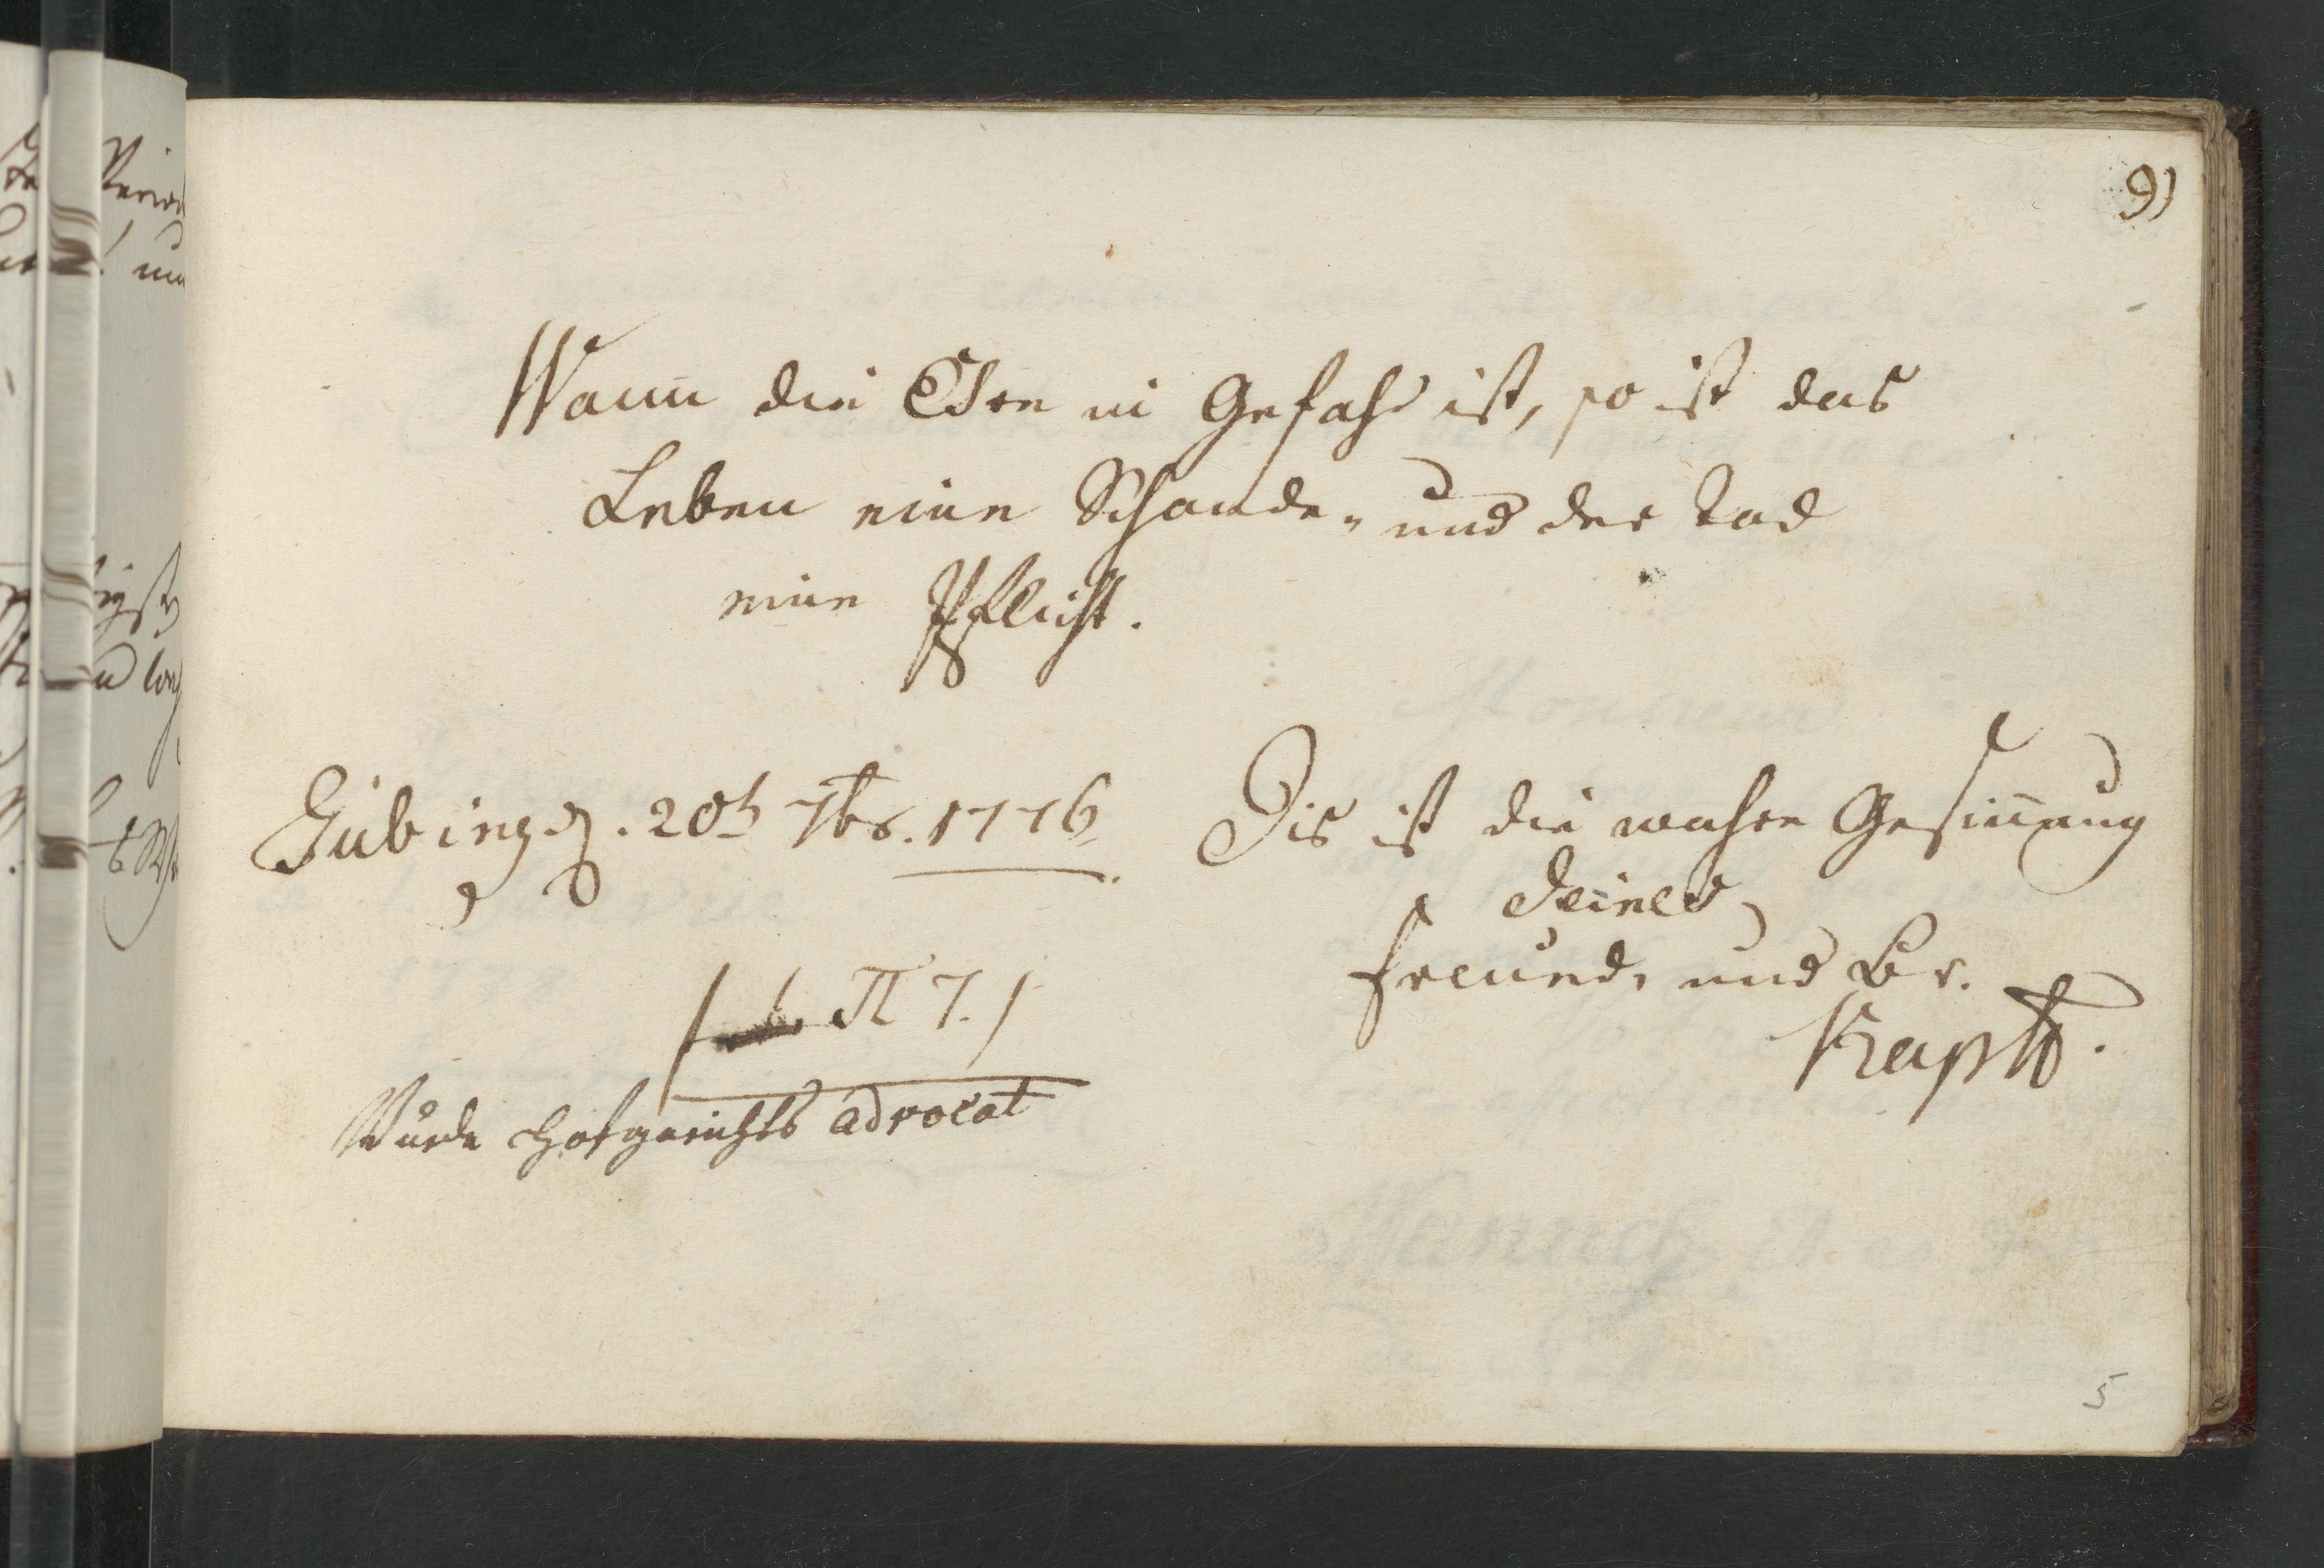 9)
Wann die Ehre in Gefahr ist, so ist das
Leben eine Schande, und der Tod
eine Pflicht.
Tübing. d. 20t 7br. 1776.
Dis ist die wahre Gesinnung
Deines
Freund, und Br.
Kapff.
π 7.
Wurde Hofgerichts advocat
5